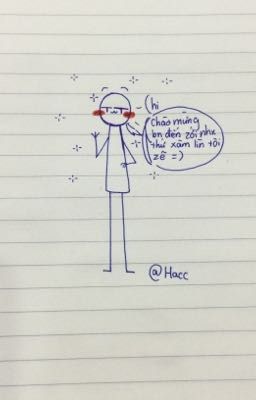 hi
Chào mừng
bn đến zới nhx
thứ xàm lìn tôi
zẽ =)
@Hacc